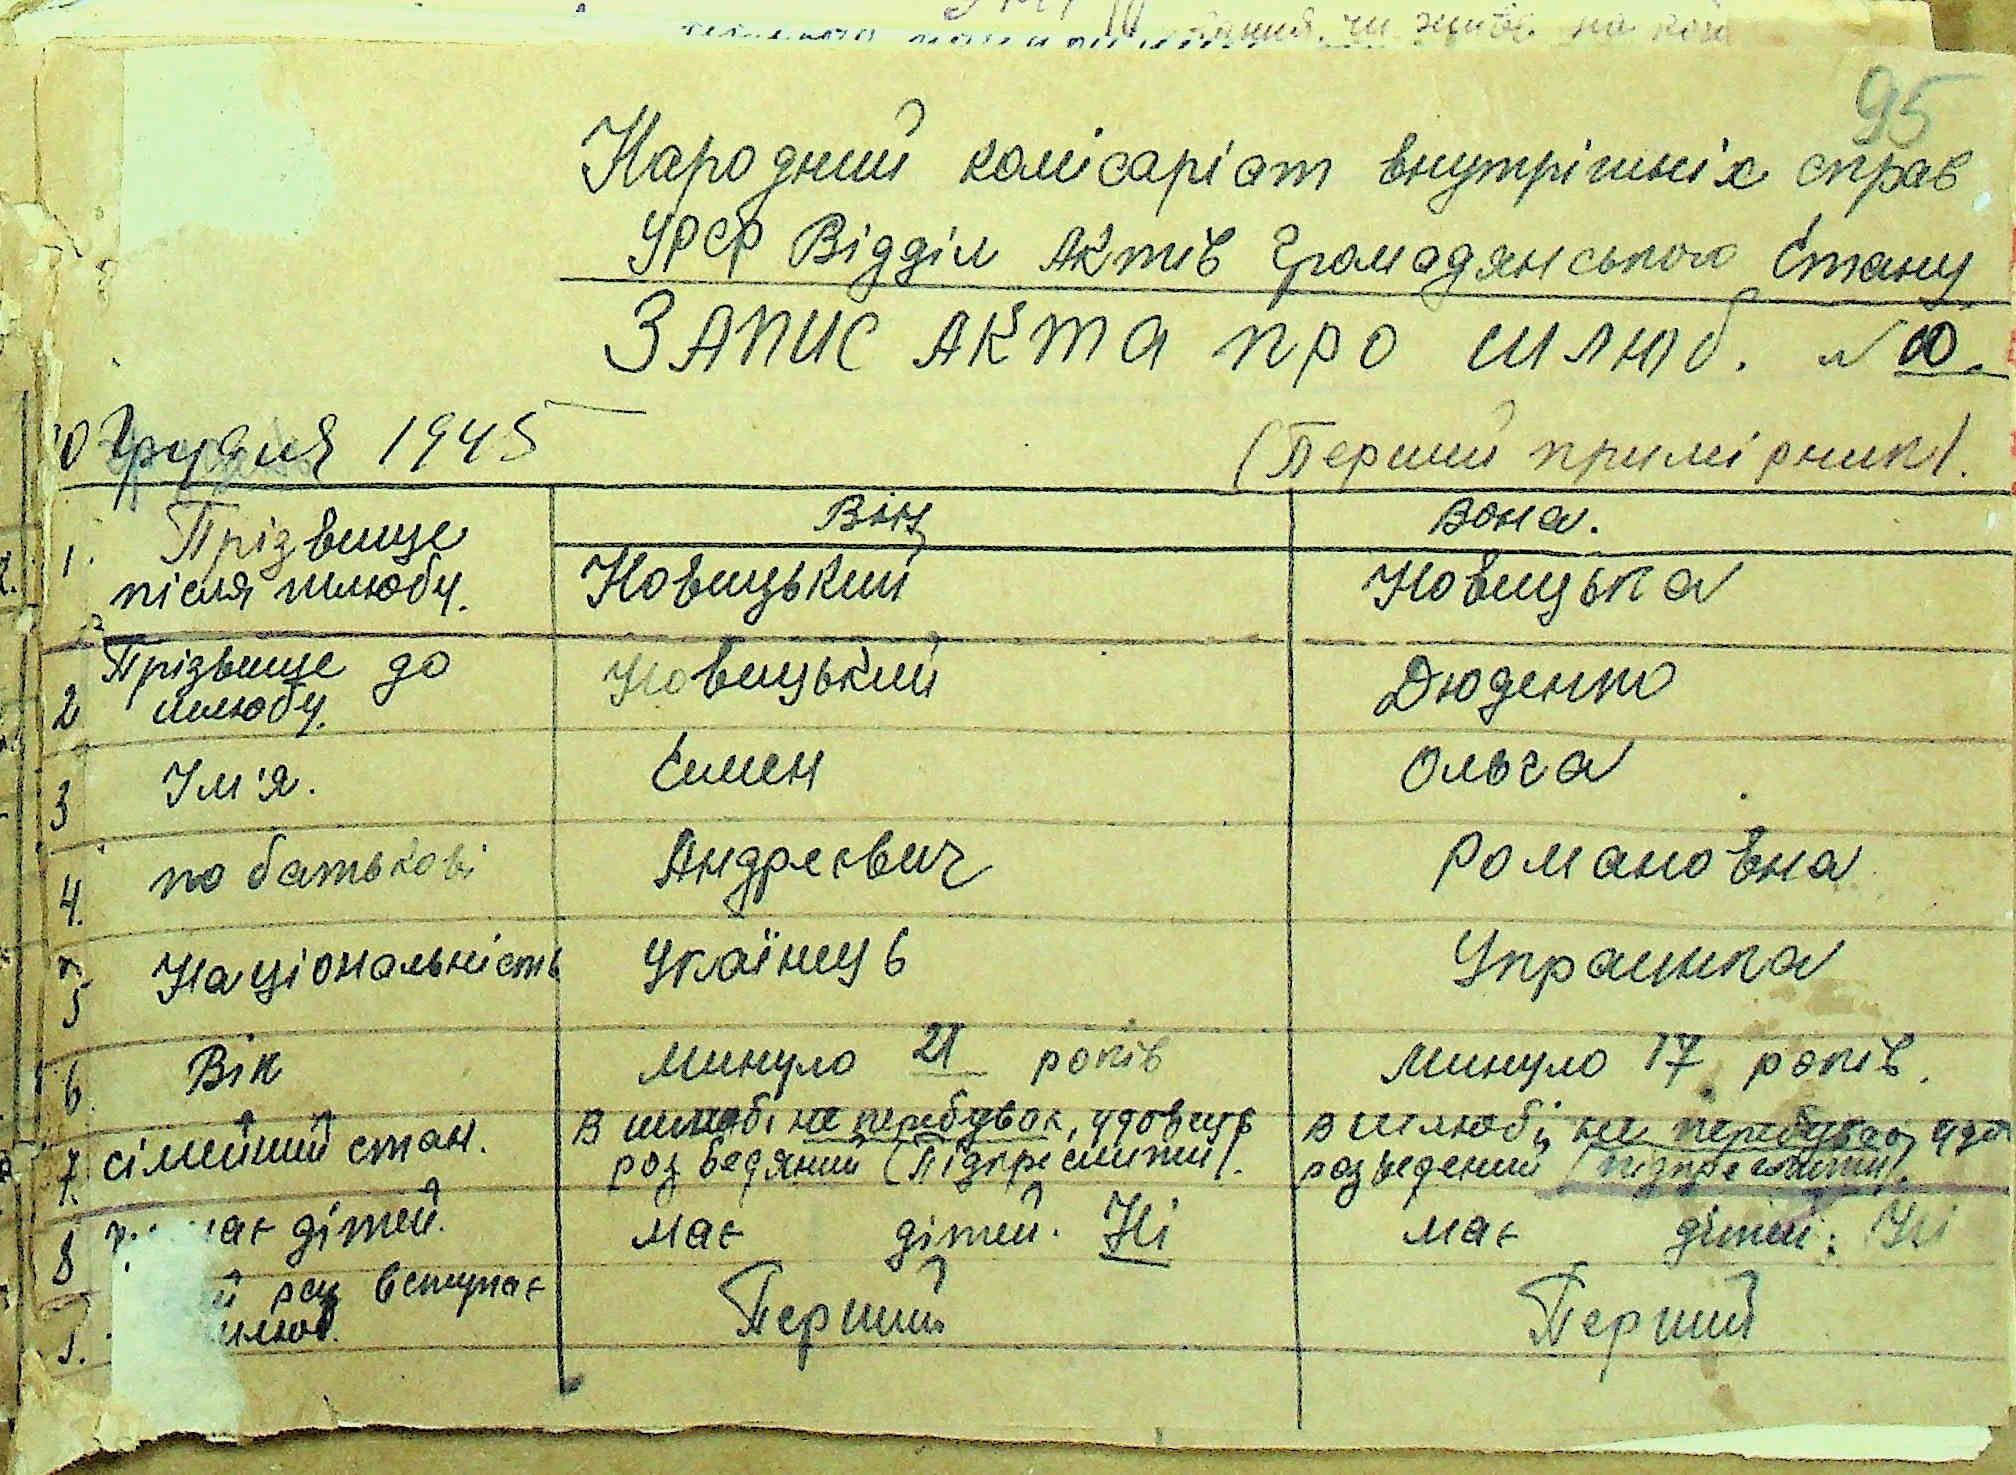 95
Народний комісаріат внутрішніх справ
УРСР Відділ Актів Громадянського Стану
Запис акта про шлюб. N 10.
10 Грудня 1945
(Перший примірник).
Він
Вона.
1. Прізвище
після шлюбу.
Новицький
Новицька
2 Прізвище до
шлюбу.
Новицький
Дюденко
3 Ім'я.
Семен
Ольга
4. по батькові
Андреєвич
Романовна
5 Національність
Українець
Украинка
6. Вік
Минуло 21 років
Минуло 17 років.
7. сімейний стан.
В шлюбі не перебував, удовець
розведяний (Підкреслити).
В шлюбі не перебуває, удо
розведений (підкреслити).
8 має дітей.
має дітей. Ні
має дітей: Ні
9. й раз вступає
шлюб.
Перший
Перший